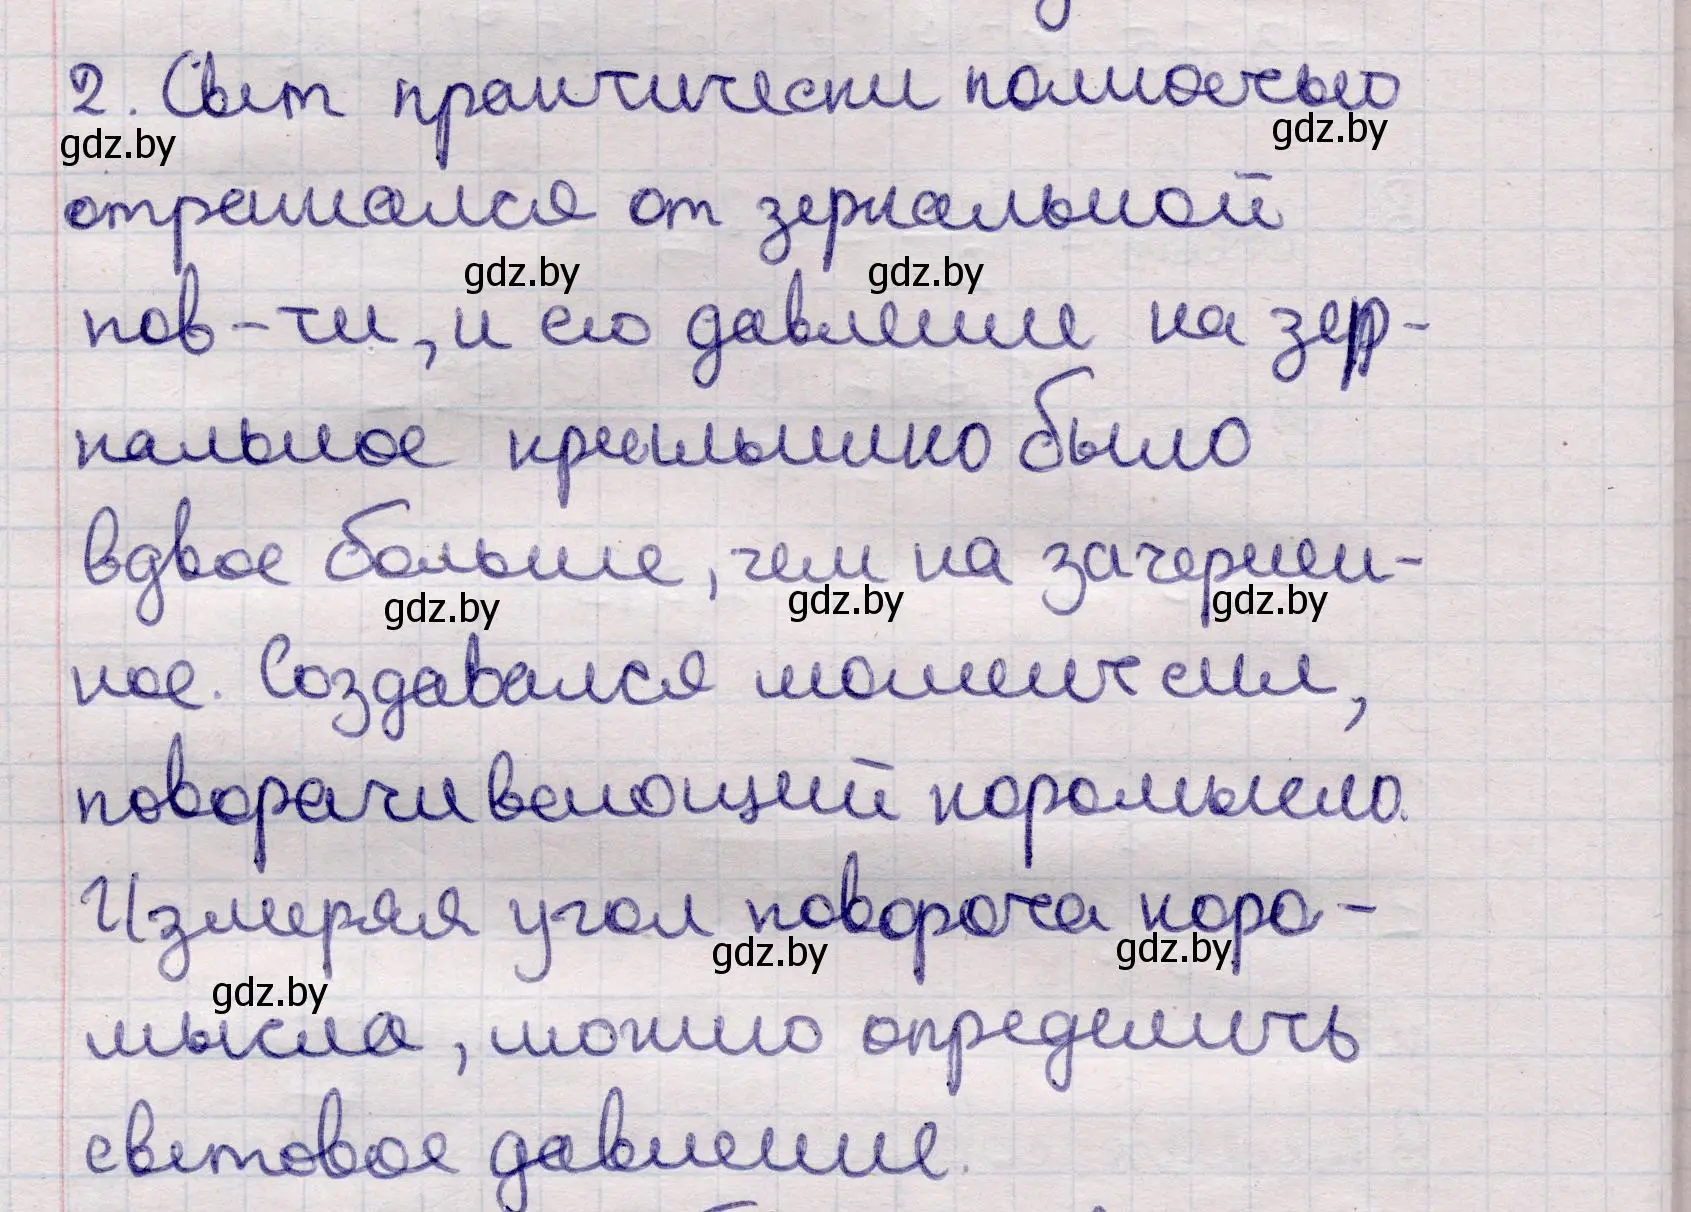 2. Свет практически полностью
gdz.by gdz.by
отражался от зеркальной
gdz.by gdz.by
пов-ти, и его давление на зер-
кальное крылышко было
вдвое больше, чем на зачернен-
gdz.by gdz.by gdz.by
ное. Создавался момент сил,
поворачивающий коромысло.
Измеряя угол поворота коро-
gdz.by gdz.by gdz.by
мысла, можно определить
световое давление.